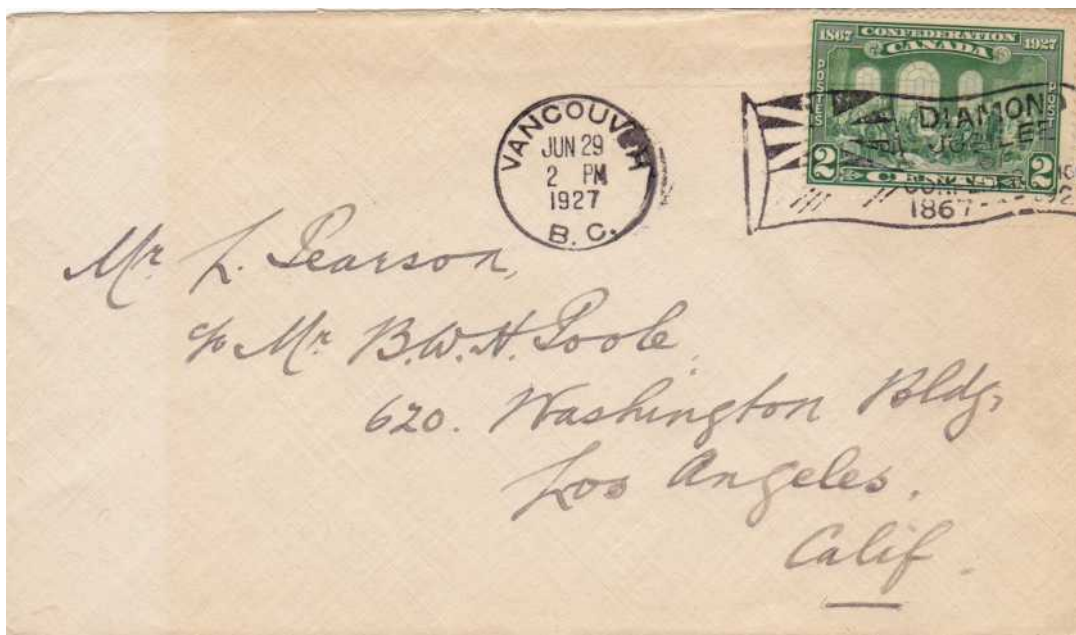 1867 CONFEDERATION 1927
CANADA
POSTES POST
2 CENTS 2
VANCOUVER
JUN 29
2 PM
1927
B.C.
DIAMON
JUBILEE
OF
1867
Mr L. Pearson,
c/o Mr B.W.H. Poole,
620. Washington Bldg,
Los Angeles,
Calif.